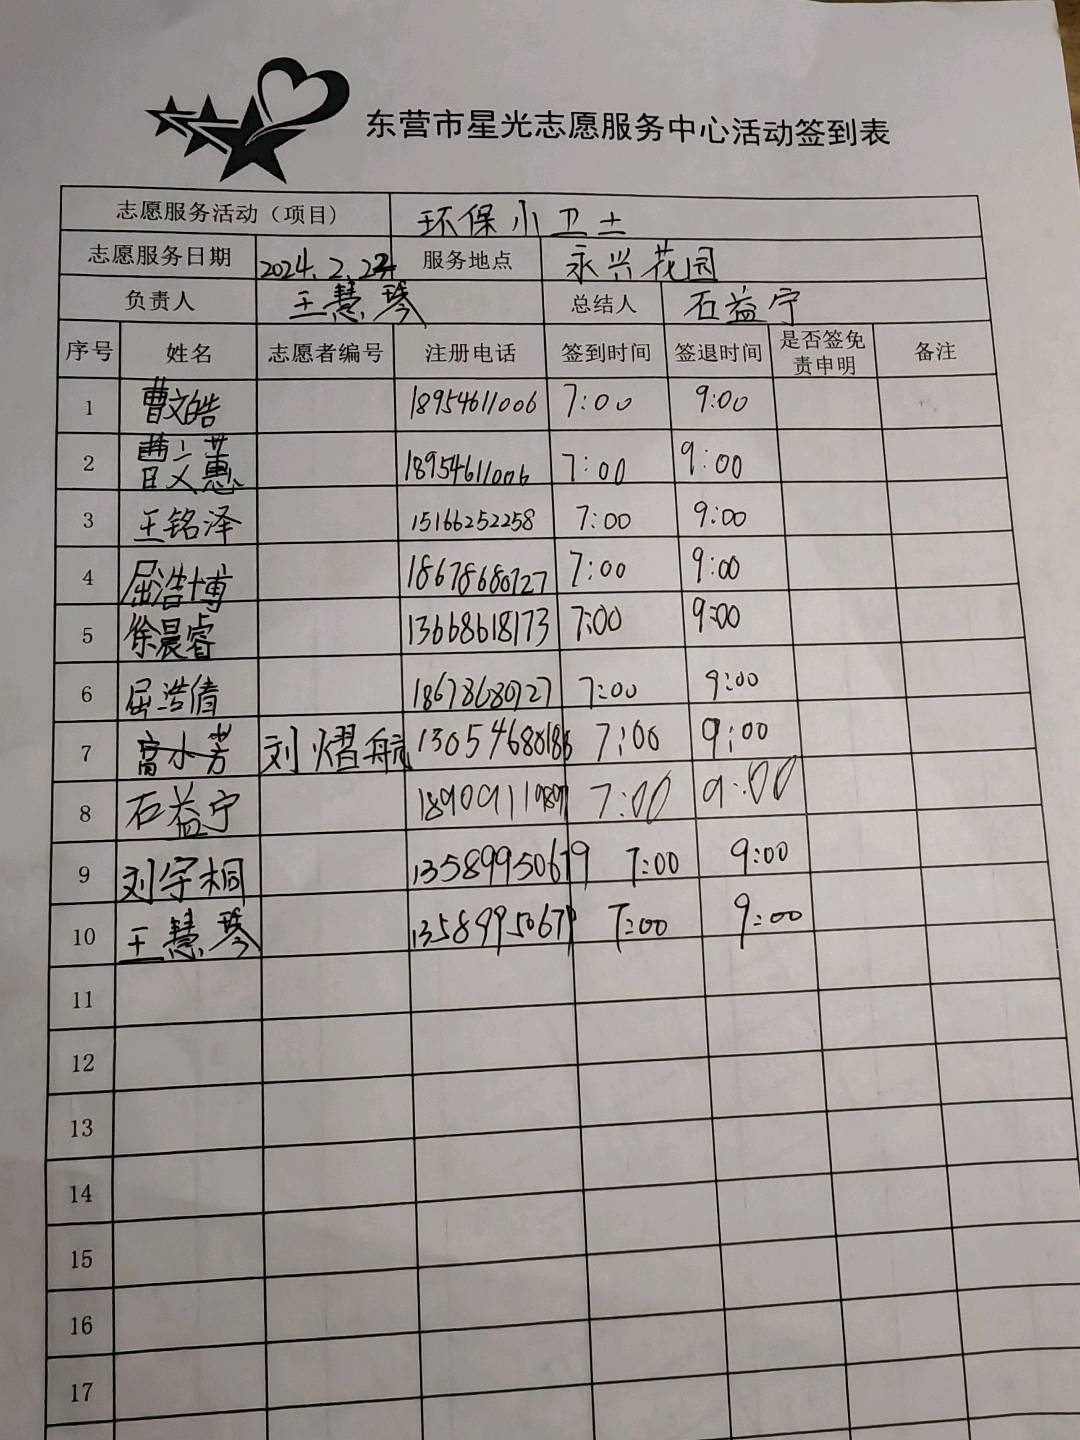 东营市星光志愿服务中心活动签到表
志愿服务活动（项目） 环保小卫士
志愿服务日期 2024.2.24 服务地点 永兴花园
负责人 王慧琴 总结人 石益宁
序号 姓名 志愿者编号 注册电话 签到时间 签退时间 是否签免责申明 备注
1 曹文皓 18954611006 7:00 9:00
2 曹文蕙 18954611006 7:00 9:00
3 王铭泽 15166252258 7:00 9:00
4 屈浩博 18678680727 7:00 9:00
5 徐晨睿 13668618173 7:00 9:00
6 屈浩倩 18678680727 7:00 9:00
7 刘熠航 13054680186 7:00 9:00
8 石益宁 7:00 9:00
9 刘宇桐 13589950679 7:00 9:00
10 王慧琴 13589950679 7:00 9:00
11
12
13
14
15
16
17